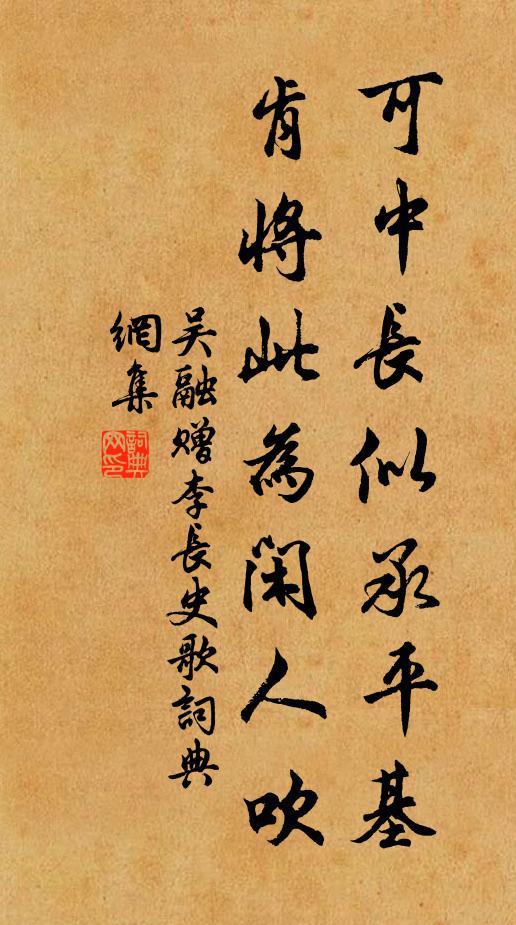 可中長似承平基
肯將此為閑人吹
吳融贈李長史歌詞典
網集
詞典網印